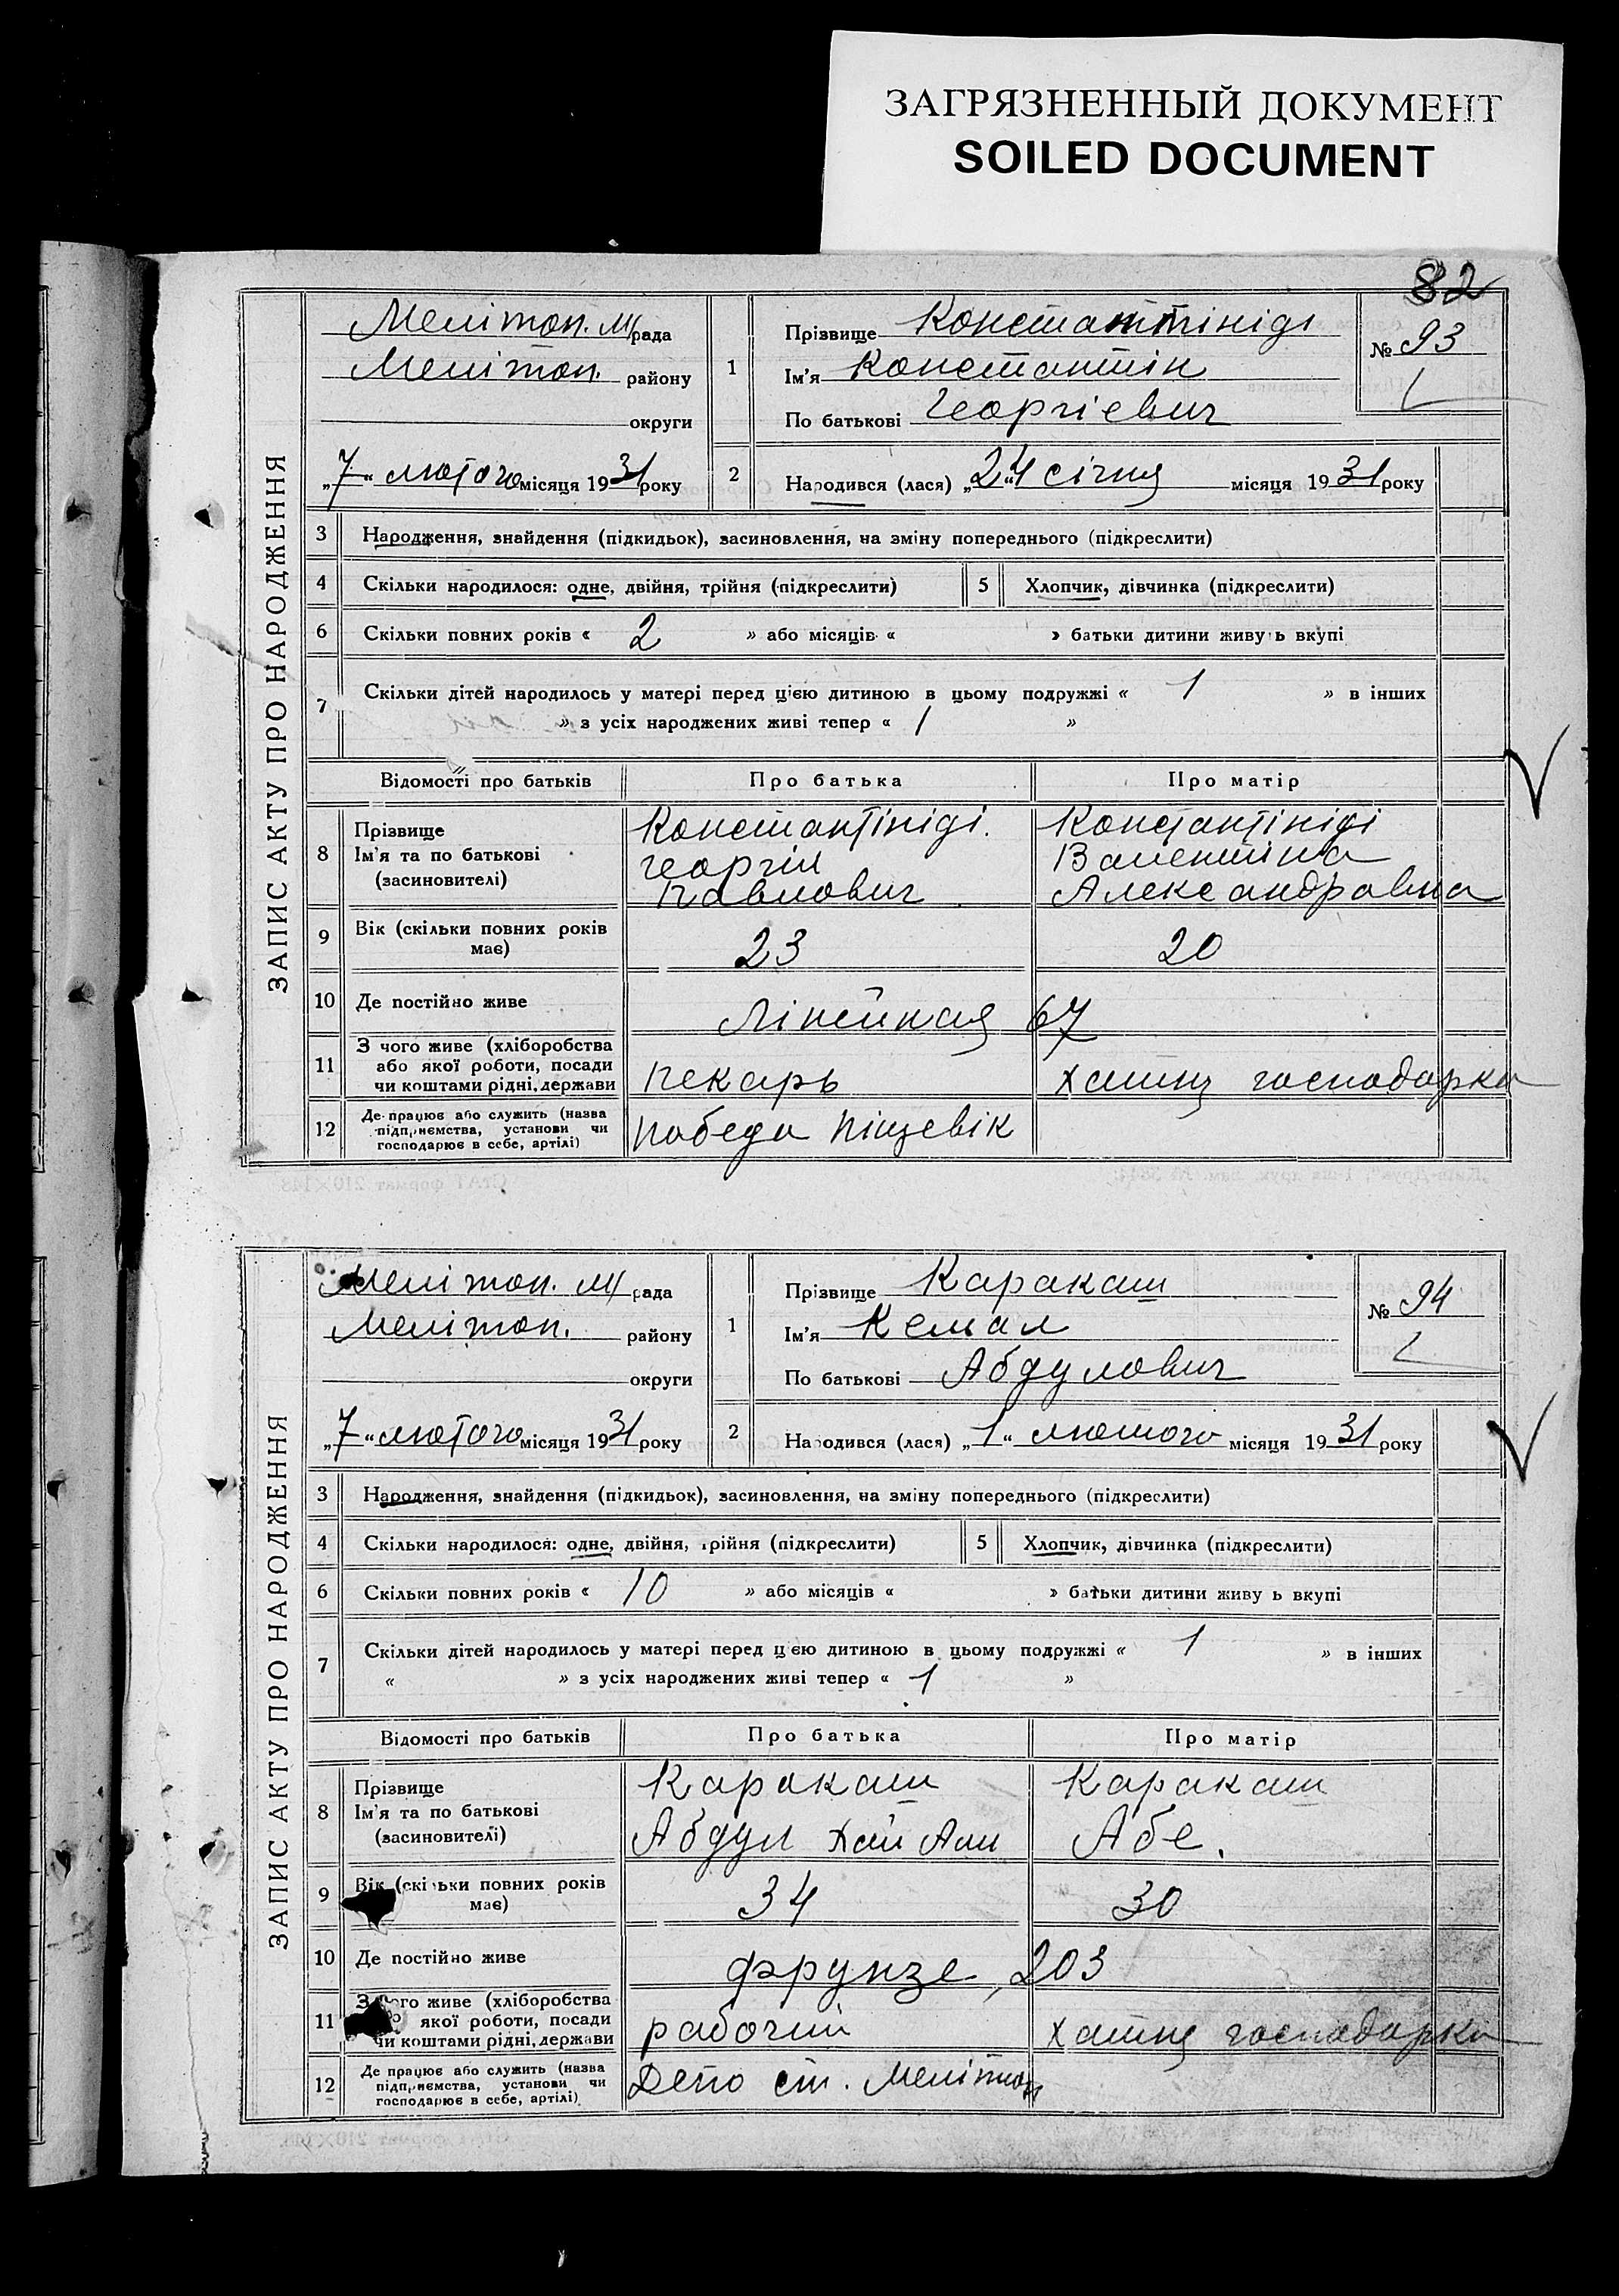 ЗАГРЯЗНЕННЫЙ ДОКУМЕНТ
SOILED DOCUMENT
82
ЗАПИС АКТУ ПРО НАРОДЖЕННЯ
Мелітоп. м/рада
Мелітоп. району
округи
„7“ лютого місяця 1931 року
1
Прізвище Константініді
Ім'я Константін
По батькові Георгіевич
№ 93
2
Народився (лася) „24“ січня місяця 1931 року
3 Народження, знайдення (підкидьок), засиновлення, на зміну попереднього (підкреслити)
4 Скільки народилося: одне, двійня, трійня (підкреслити) 5 Хлопчик, дівчинка (підкреслити)
6 Скільки повних років « 2 » або місяців « » батьки дитини живуть вкупі
7 Скільки дітей народилось у матері перед цією дитиною в цьому подружжі « 1 » в інших
» з усіх народжених живі тепер « 1 »
Відомості про батьків Про батька Про матір
8 Прізвище
Ім'я та по батькові
(засиновителі)
Константініді.
Георгій
Павлович
Константініді
Валентіна
Александравна
9 Вік (скільки повних років
має)
23 20
10 Де постійно живе Лінейная 67
11 З чого живе (хліборобства
або якої роботи, посади
чи коштами рідні, держави
пекарь хатня господарка
12 Де працює або служить (назва
підприємства, установи чи
господарює в себе, артілі)
победа піщевік
ЗАПИС АКТУ ПРО НАРОДЖЕННЯ
Мелітоп. м/рада
Мелітоп. району
округи
„7“ лютого місяця 1931 року
1
Прізвище Каракаш
Ім'я Кемал
По батькові Абдулович
№ 94
2
Народився (лася) „1“ лютого місяця 1931 року
3 Народження, знайдення (підкидьок), засиновлення, на зміну попереднього (підкреслити)
4 Скільки народилося: одне, двійня, трійня (підкреслити) 5 Хлопчик, дівчинка (підкреслити)
6 Скільки повних років « 10 » або місяців « » батьки дитини живу ь вкупі
7 Скільки дітей народилось у матері перед цією дитиною в цьому подружжі « 1 » в інших
« » з усіх народжених живі тепер « 1 »
Відомості про батьків Про батька Про матір
8 Прізвище
Ім'я та по батькові
(засиновителі)
Каракаш
Абдул Хай Али
Каракаш
Абе.
9 Вік (скільки повних років
має)
34 30
10 Де постійно живе Фрунзе, 203
11 З чого живе (хліборобства
якої роботи, посади
чи коштами рідні, держави
рабочий хатня господарка
12 Де працює або служить (назва
підприємства, установи чи
господарює в себе, артілі)
Депо ст. Мелітоп